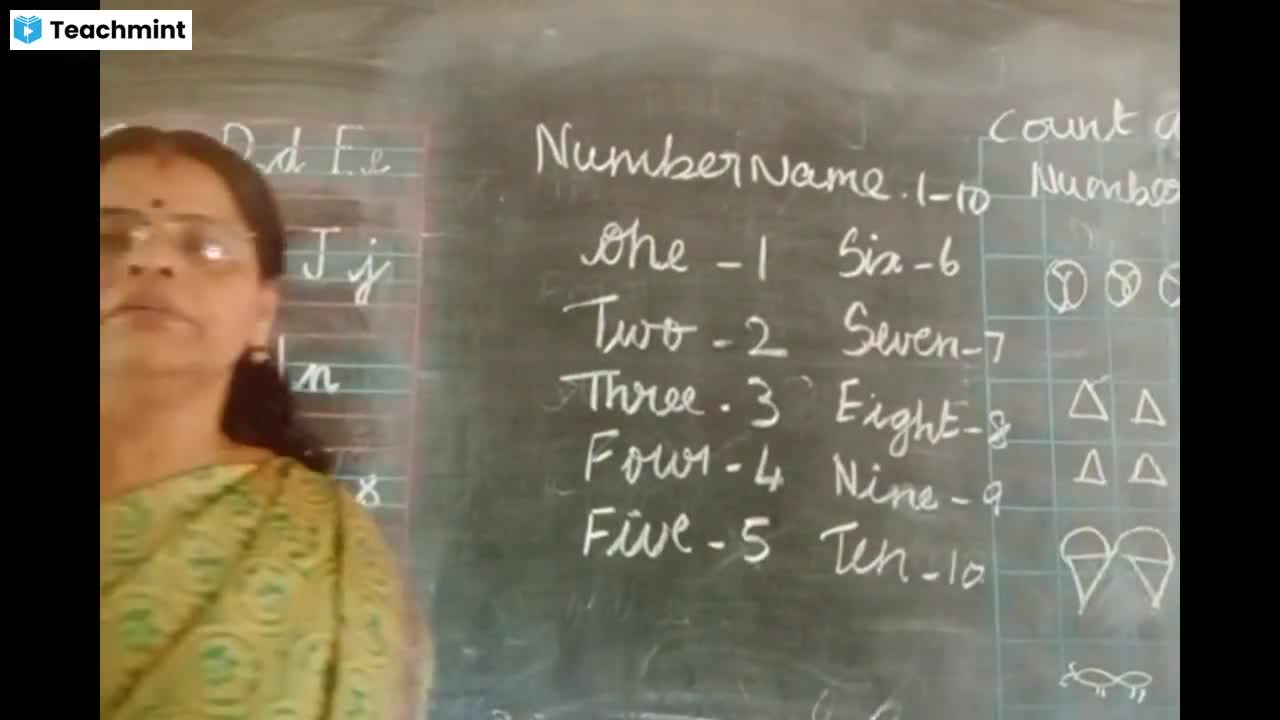 Teachmint
D d E e
J j
n
Number Name. 1-10
One - 1
Two - 2
Three - 3
Four - 4
Five - 5
Six - 6
Seven - 7
Eight - 8
Nine - 9
Ten - 10
Count
Number